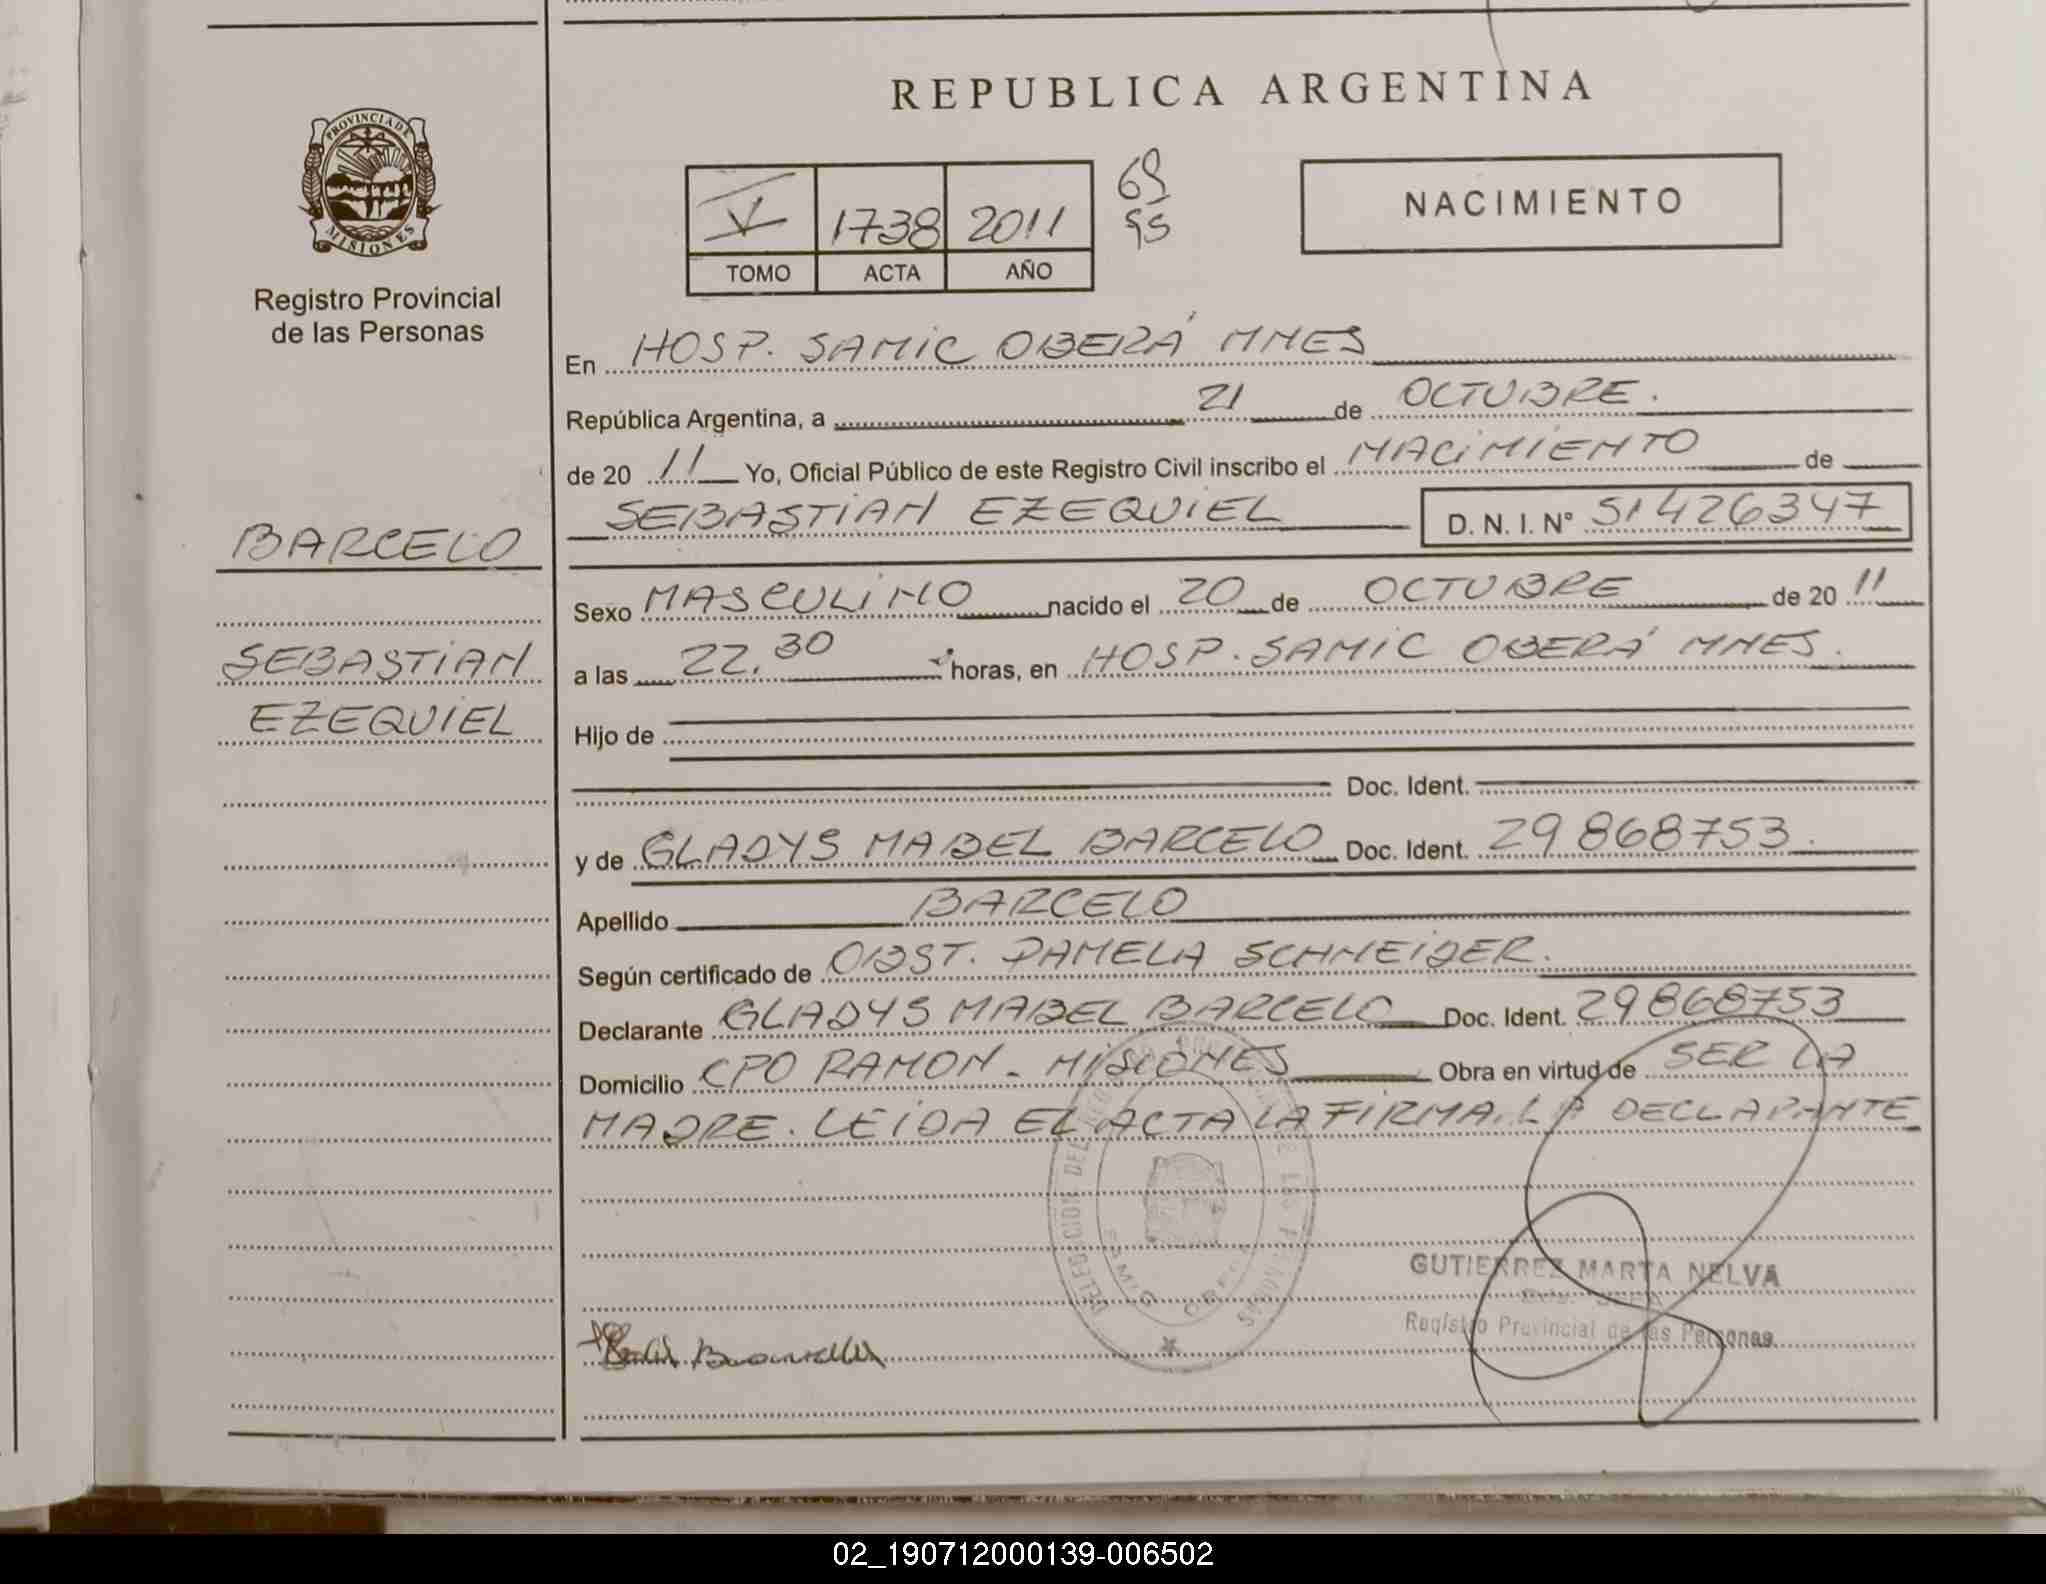 REPUBLICA ARGENTINA
PROVINCIA DE
MISIONES
Registro Provincial
de las Personas
V 1738 2011
TOMO ACTA AÑO
NACIMIENTO
En HOSP. SAMIC OBERÁ MNES
República Argentina, a 21 de OCTUBRE.
de 20 11 Yo, Oficial Público de este Registro Civil inscribo el NACIMIENTO de
SEBASTIAN EZEQUIEL D. N. I. N° 51426347
BARCELO
SEBASTIAN
EZEQUIEL
Sexo MASCULINO nacido el 20 de OCTUBRE de 20 11
a las 22.30 horas, en HOSP. SAMIC OBERÁ MNES.
Hijo de
Doc. Ident.
y de GLADYS MABEL BARCELO Doc. Ident. 29868753.
Apellido BARCELO
Según certificado de OBST. PAMELA SCHNEIDER.
Declarante GLADYS MABEL BARCELO Doc. Ident. 29868753
Domicilio CPO RAMON - MISIONES Obra en virtud de SER LA
MADRE. LEIDA EL ACTA LA FIRMA. LA DECLARANTE
GUTIERREZ MARTA NELVA
Registro Provincial de las Personas
02_190712000139-006502